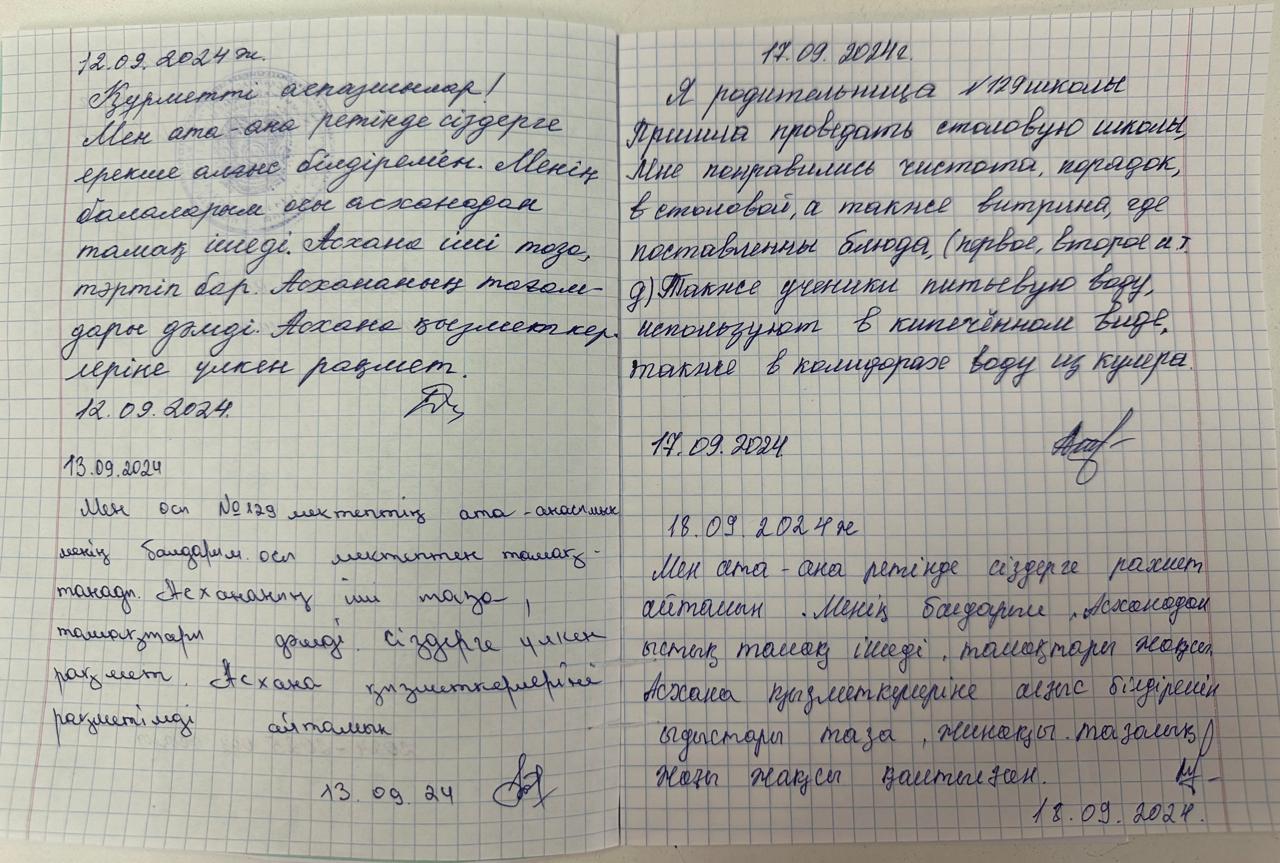 12.09.2024ж.
Құрметті аспазшылар!
Мен ата-ана ретінде сіздерге
ерекше алғыс білдіремін. Менің
балаларым осы асханадан
тамақ ішеді. Асхана іші таза,
тәртіп бар. Асхананың тағам-
дары дәмді. Асхана қызметкер-
леріне үлкен рақмет.
12.09.2024.
13.09.2024
Мен осы №129 мектептің ата-анасымын
менің балдарым осы мектептен тамақ-
танады. Асхананың іші таза,
тамақтары дәмді. Сіздерге үлкен
рақмет. Асхана қызметкерлеріне
рақметімді айтамын
13.09.24
17.09.2024г.
Я родительница №129 школы
Пришла проведать столовую школы,
Мне понравились чистота, порядок,
в столовой, а также витрина, где
поставленны блюда, (первое, второе и т.
д) Также ученики питьевую воду,
используют в кипечённом виде,
также в колидорах воду из кулера.
17.09.2024
18.09.2024ж
Мен ата-ана ретінде сіздерге рахмет
айтамын. Менің балдарым. Асханадан
ыстық тамақ ішеді, тамақтары жақсы.
Асхана қызметкеріне алғыс білдіремін
ыдыстары таза, жинақы. тазалық
жағы жақсы қамтылған.
18.09.2024.